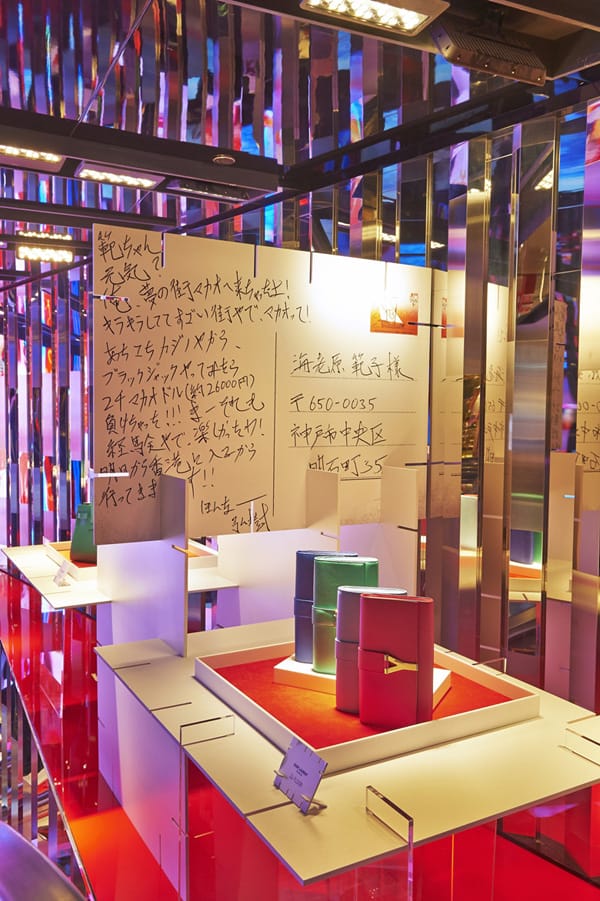 範ちゃん
元気?
俺 夢の街マカオへ来ちゃったよ!
キラキラしててすごい街やで、マカオって!
あちこちカジノやから、
ブラックジャックやってみたら
2千マカオドル(約26000円)
負けちゃった!!! まーそれも
経験やで、楽しけっちゃり!
明日から香港に入るから
行ってきま す!!
ほんな
海老原 範子様
〒650-0035
神戸市中央区
明石町35